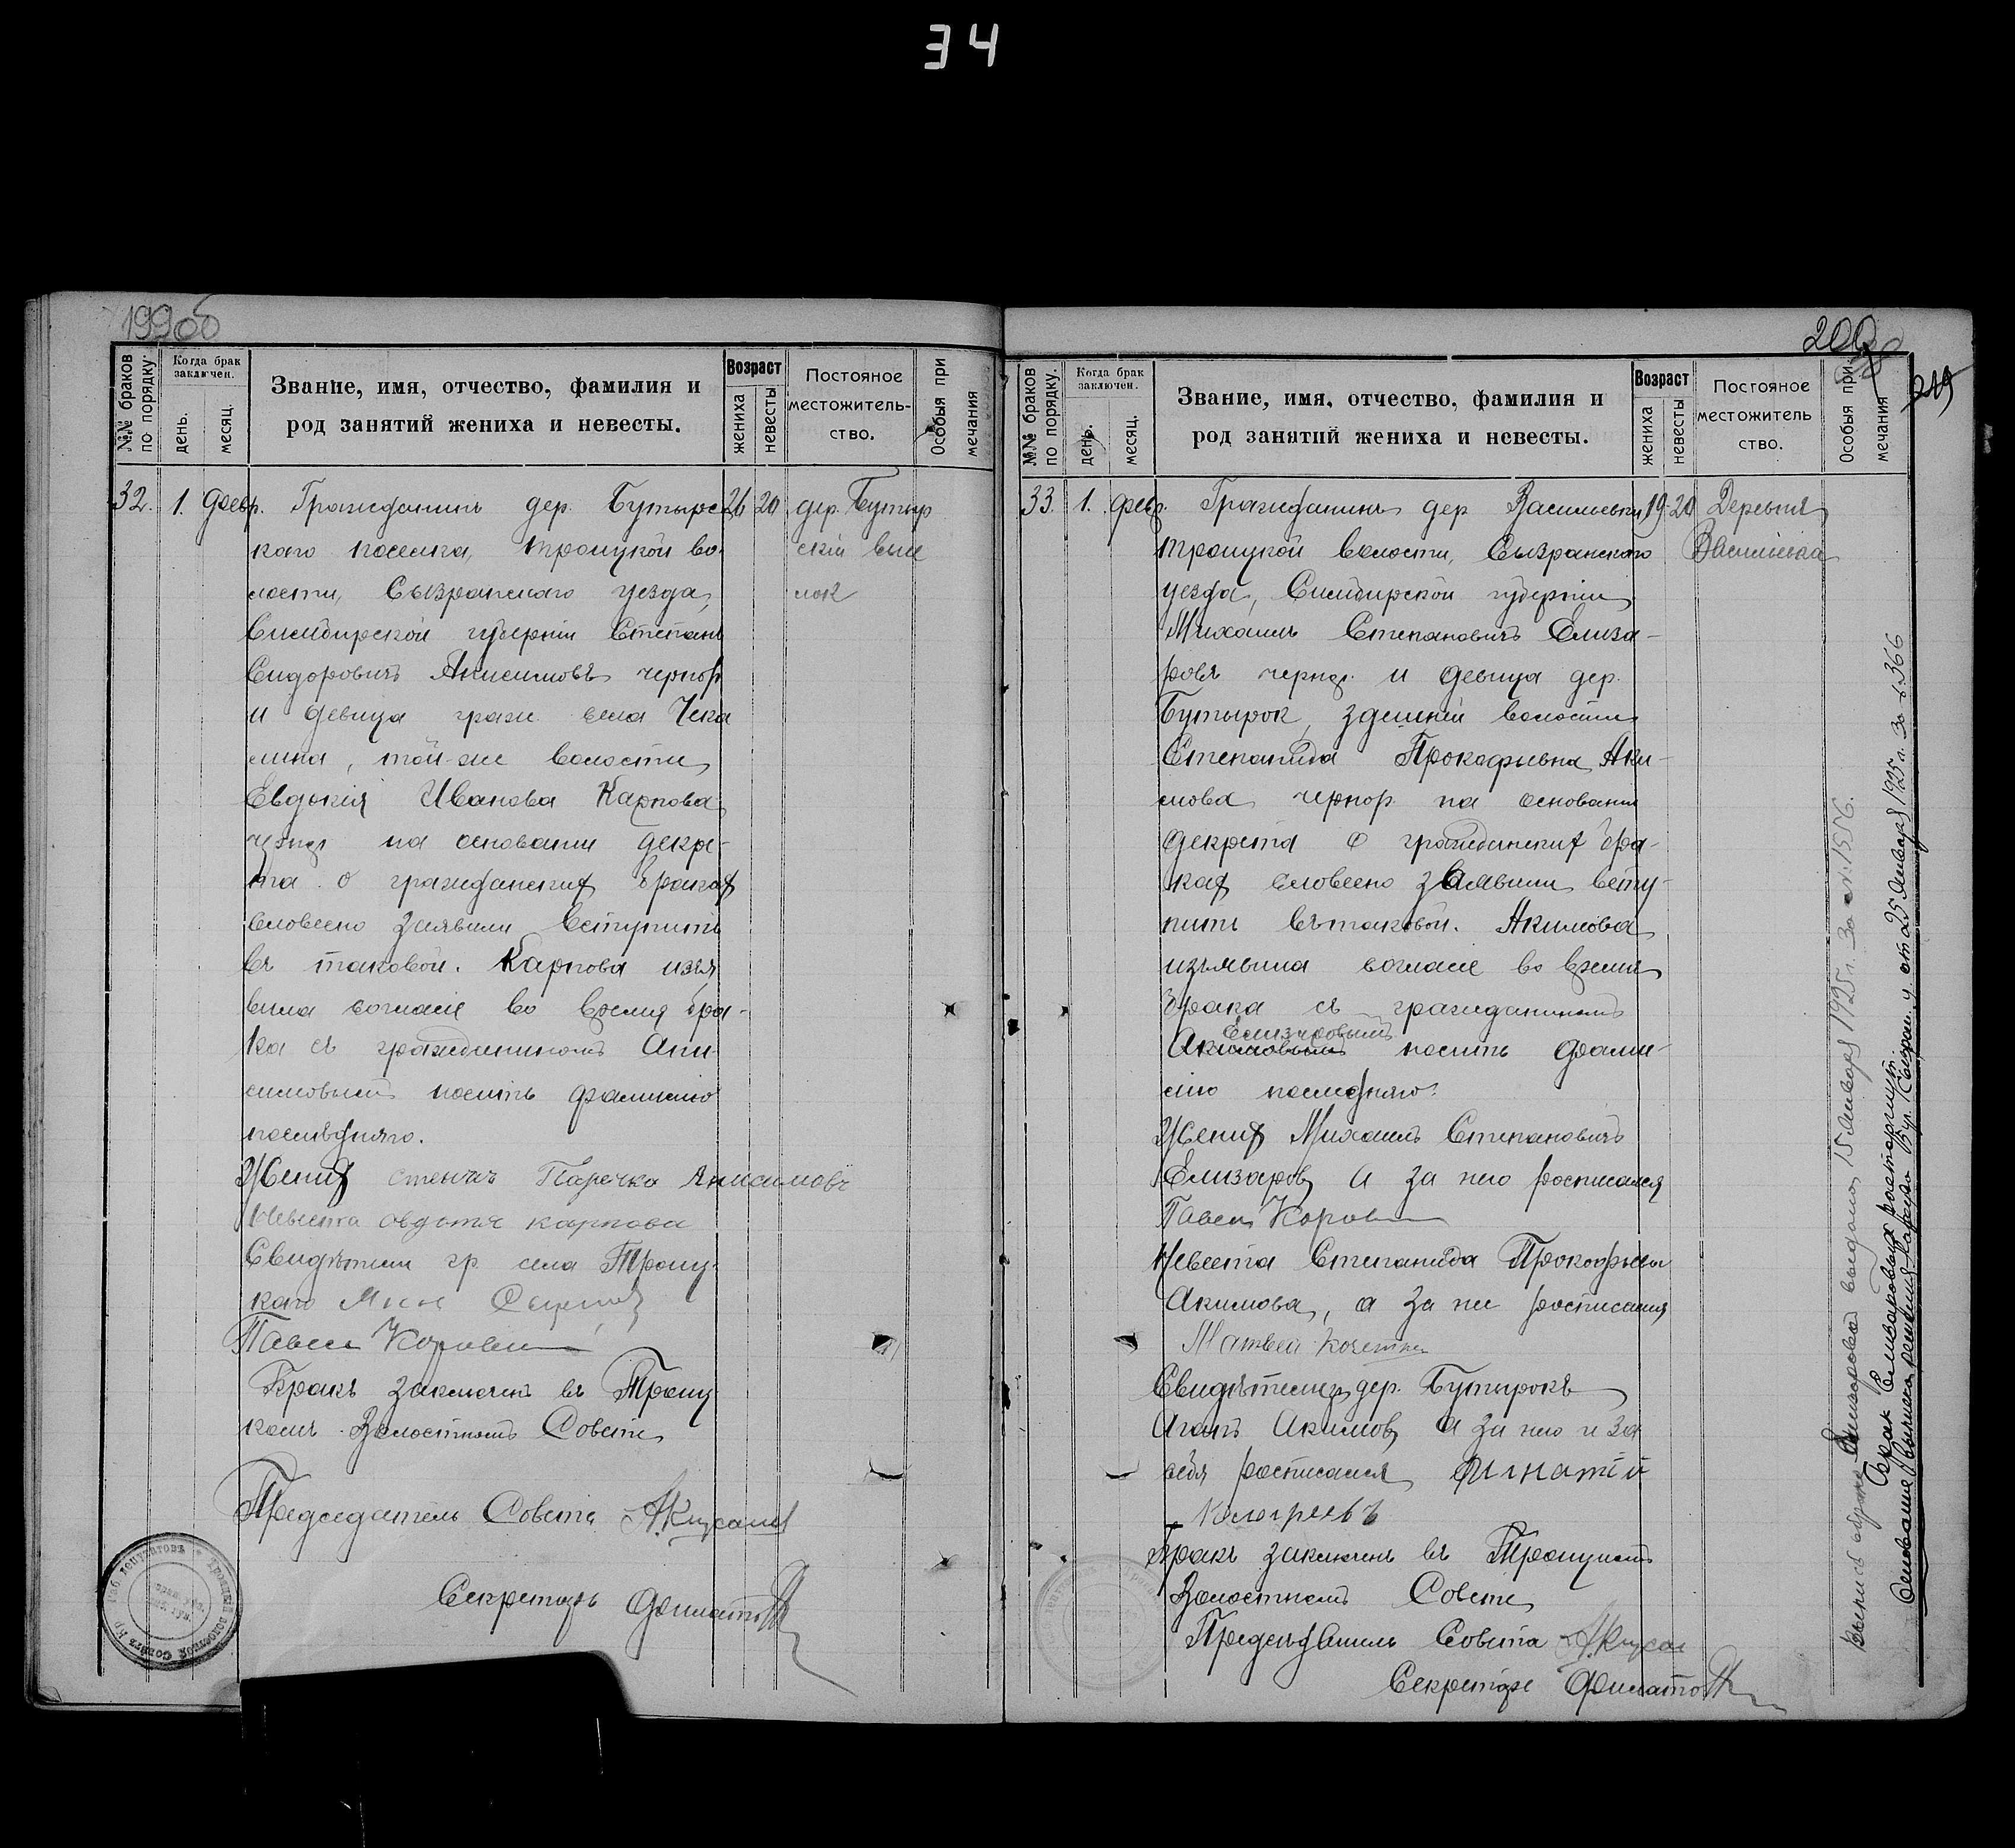 34
199об
№№ браков по порядку.
Когда брак заключен.
день.
месяц.
Звание, имя, отчество, фамилия и
род занятий жениха и невесты.
Возраст
жениха
невесты
Постояное
местожитель-
ство.
Особыя при
мечания
32. 1. Февр. Гражданинъ дер. Бутырс 26 20 дер. Бутыр
каго поселка, Троицкой во- скій высе
лости, Сызранскаго уезда, лок
Симбирской губерніи Степанъ
Сидоровичъ Анисимовъ чернор
и девица граж. села Чека
лина, той-же волости
Евдокія Иванова Карпова
чернор на основании декре-
та о гражданских браках
словесно заявили вступить
въ таковой. Карпова изъя
вила согласіе во время бра-
ка съ гражданиномъ Ани-
симовымъ носить фамилию
последняго.
Жених Анисимовъ
Невеста овдотя карпова
Свидѣтели гр. села Троиц-
каго
Павел Коровин
Бракъ заключенъ въ Троиц
комъ Волостномъ Совете
Председатель Совета
Секретарь Филатов
200
219
№№ браков по порядку.
Когда брак заключен.
день.
месяц.
Звание, имя, отчество, фамилия и
род занятий жениха и невесты.
Возраст
жениха
невесты
Постояное
местожитель
ство.
Особыя при.
мечания
33. 1. февр. Гражданинъ дер Васильевки 19 20 Деревня
Троицкой волости, Сызранскаго Васильевка
уезда, Симбирской губернии
Михаилъ Степановичъ Елиза-
ровъ чернор. и девица дер.
Бутырок, здешней волости
Степанида Прокофьевна Аки-
мова чернор. на основании
декрета о гражданских бра-
ках словесно заявили всту-
пить въ таковой. Акимова
изъявила согласіе во время
брака съ гражданиномъ
Елизаровымъ
Акимовымъ носить фами-
лию последняго.
Жених Михаилъ Степановичъ
Елизаров, а за него росписался
Павел Коровин
Невеста Степанида Прокофьевна
Акимова, а за нее росписался
Матвей
Свидѣтели дер. Бутырокъ
Агапъ Акимов, а за него и за
себя росписался Игнатій
Бракъ заключенъ въ Троицкомъ
Волостномъ Совете
Председатель Совета
Секретарь Филатов
15 января 1925 г. За № 1556.
Брак Елизаровых расторгнут.
Основание: выписка решения Сызран. у. от 25 января 1925 г. за № 366